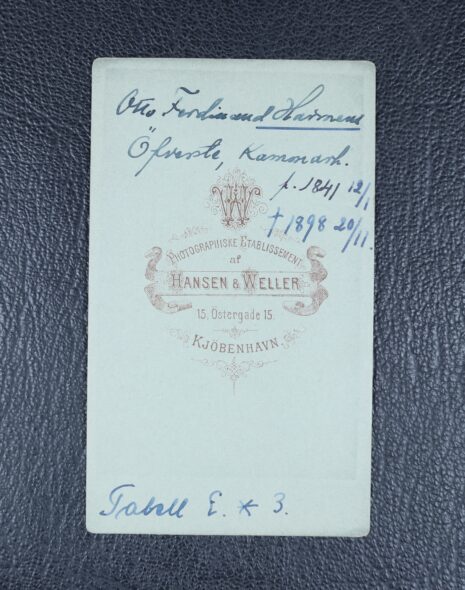 Otto Ferdinand Harmens
Öfverste, Kammarh.
f. 1841 12/1
† 1898 20/11.
HW
PHOTOGRAPHISKE ETABLISSEMENT
af
HANSEN & WELLER
15, Östergade 15.
KJÖBENHAVN.
Tabell E. * 3.